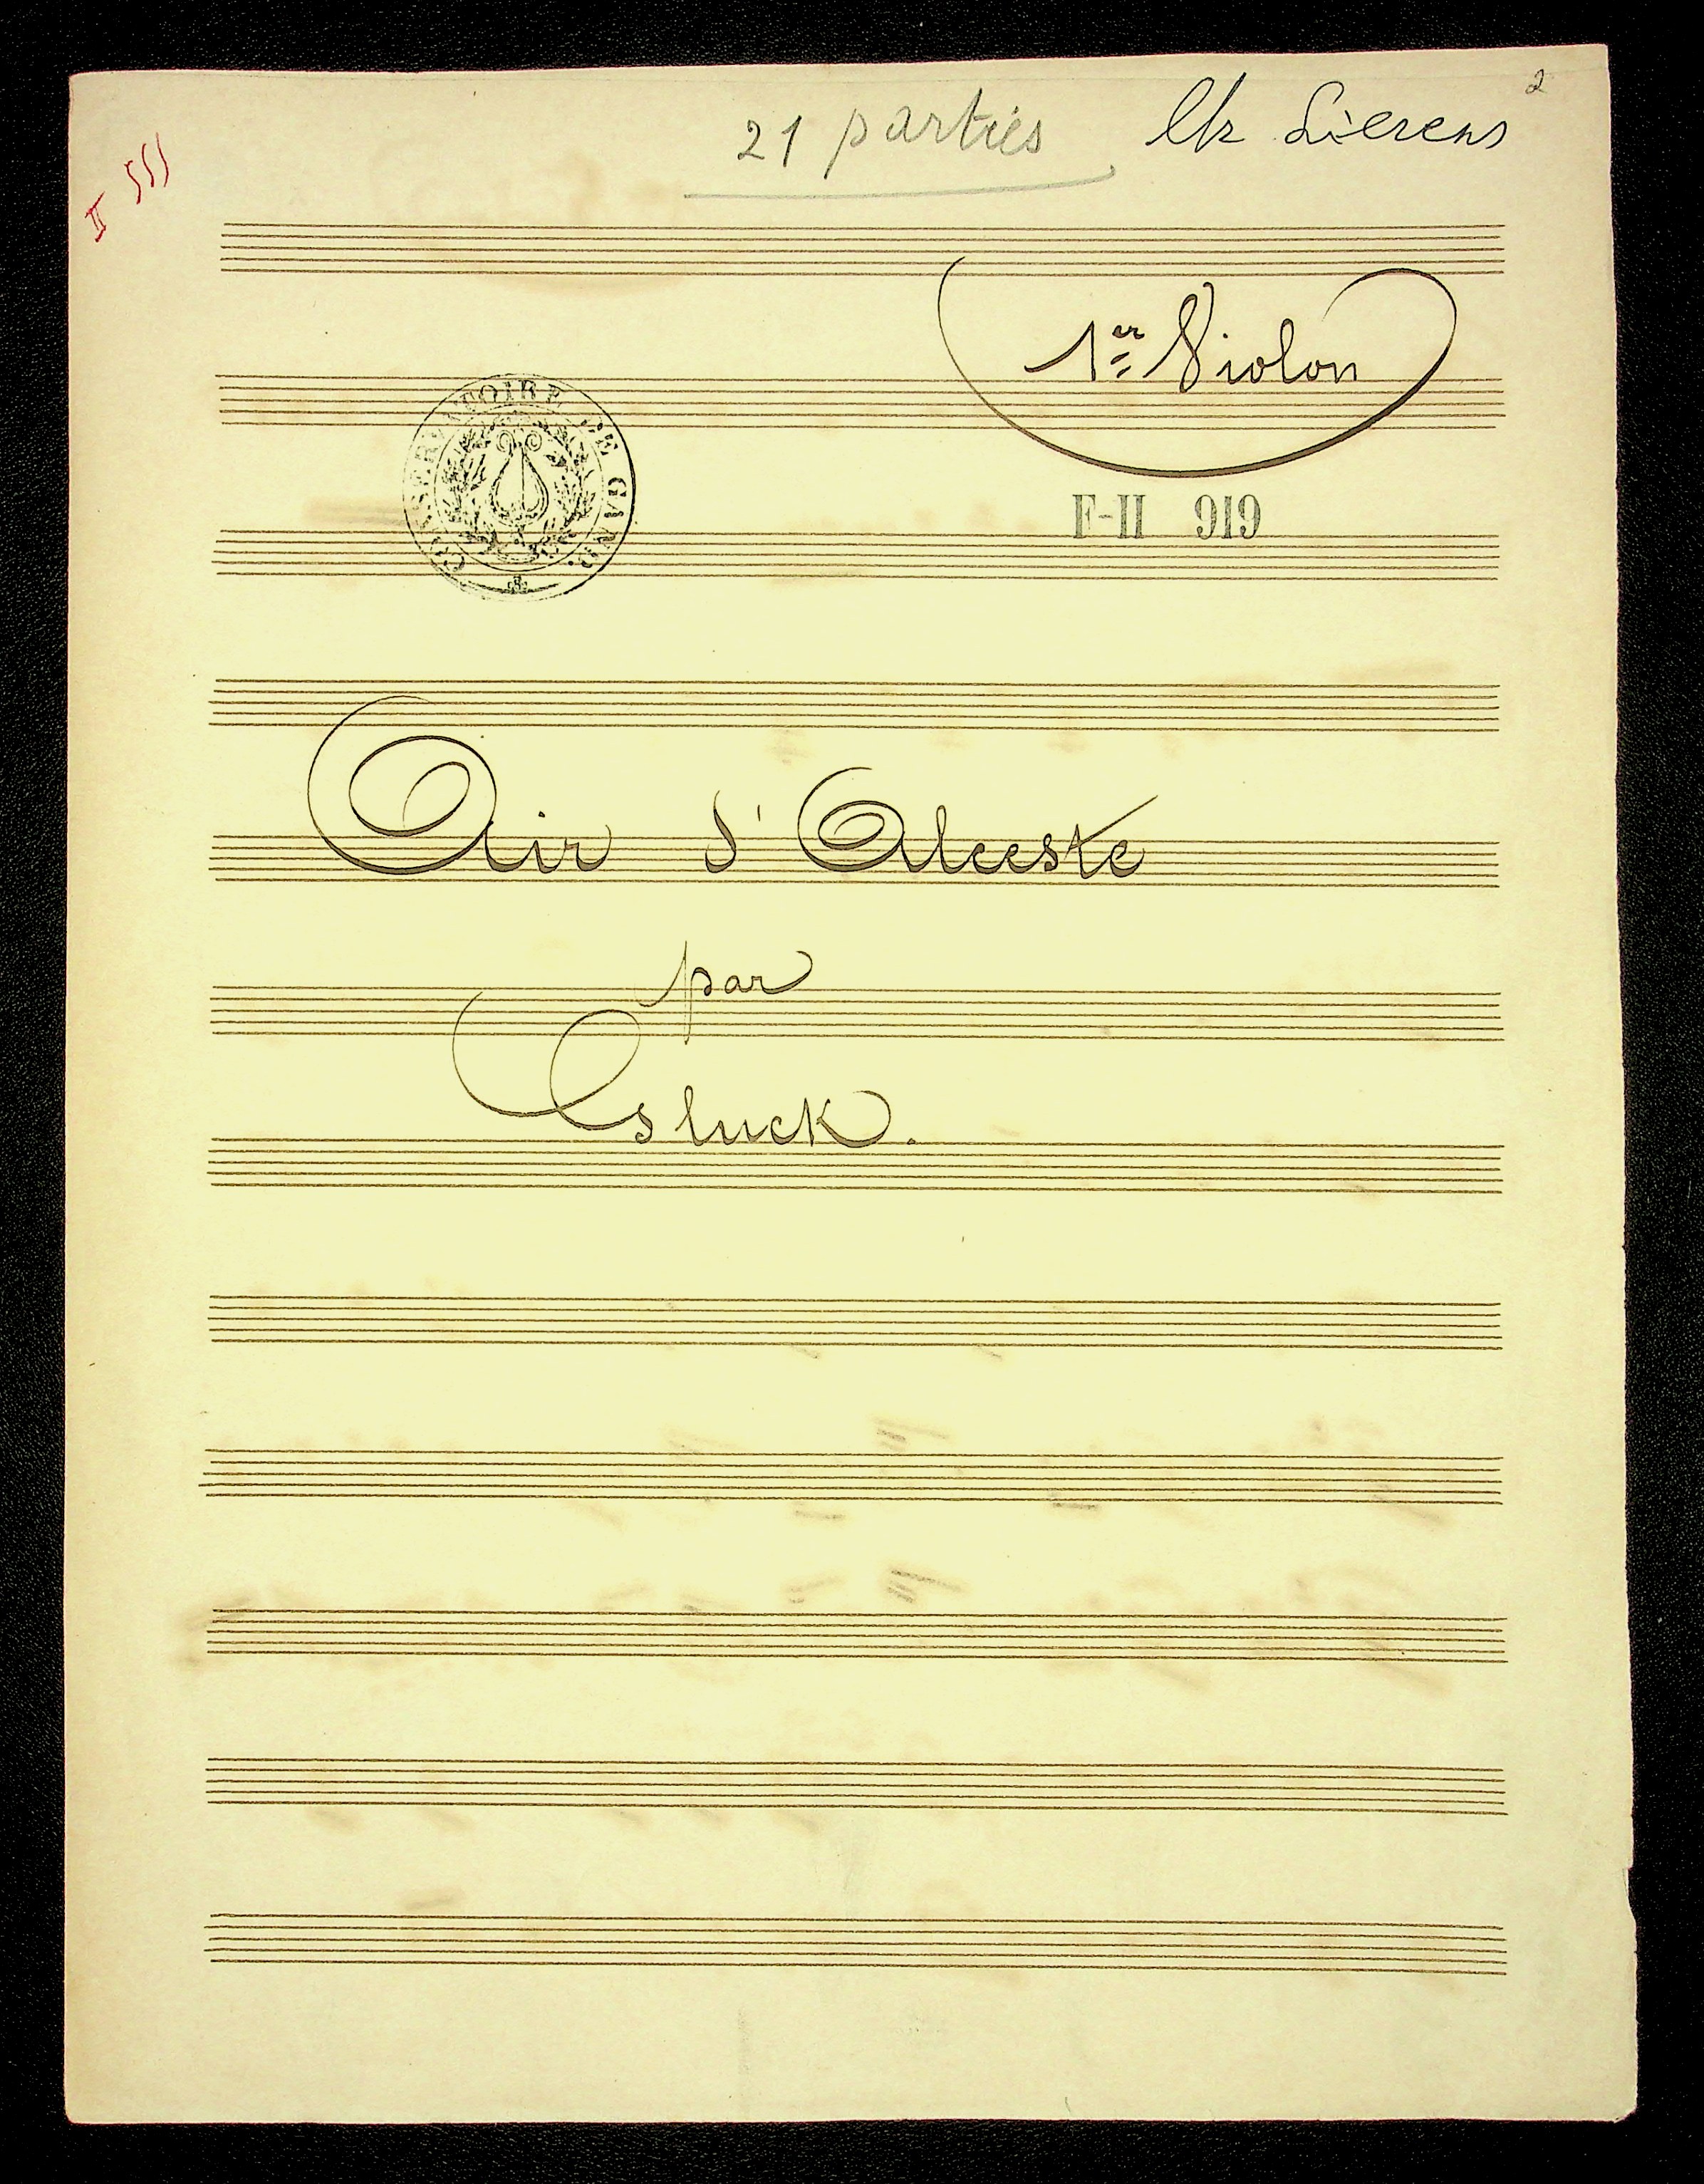 2
21 parties Ch Lierens
II 555
1er Violon
CONSERVATOIRE DE GAND.
F-II 919
Air d'Alceste
par
Gluck.